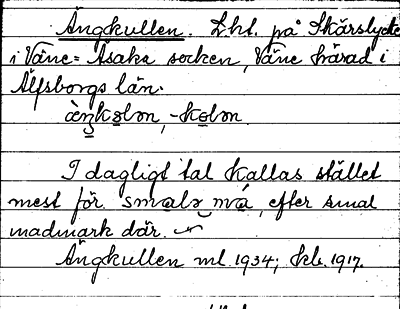 Ängkullen. Lht. på Skärslycke
i Väne-Åsaka socken, Väne härad i
Älfsborgs län.
I dagligt tal kallas stället
mest för smalə má, efter smal
madmark där.
Ängkullen ml. 1934; kb. 1917.